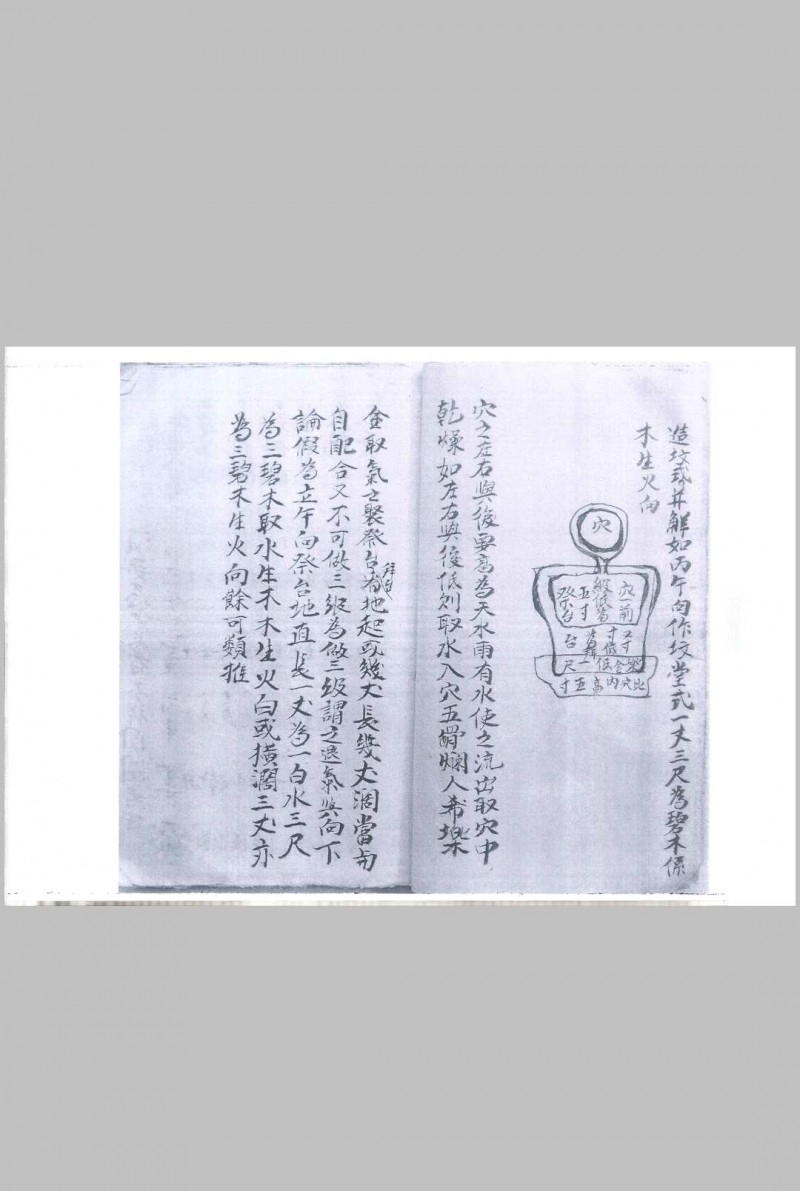 造坟式并解如丙午向作坟堂式一丈三尺為碧木係
木生火向
穴
穴前
級後高
五寸
祭台
又寸
寸低
台
尺一低
比穴内高五寸
穴之左右與後要高為天水雨有水使之流出取穴中
乾燥如左右與後低則取水入穴五骨爛人希墣
金取氣之聚祭台者地起或幾丈長幾丈濶當与
拜台
自配合又不可做三級為做三级謂之退氣與向下
論假為立午向祭台地直長一丈為一白水三尺
為三碧木取水生木木生火向或横濶三丈亦
為三碧木生火向餘可類推